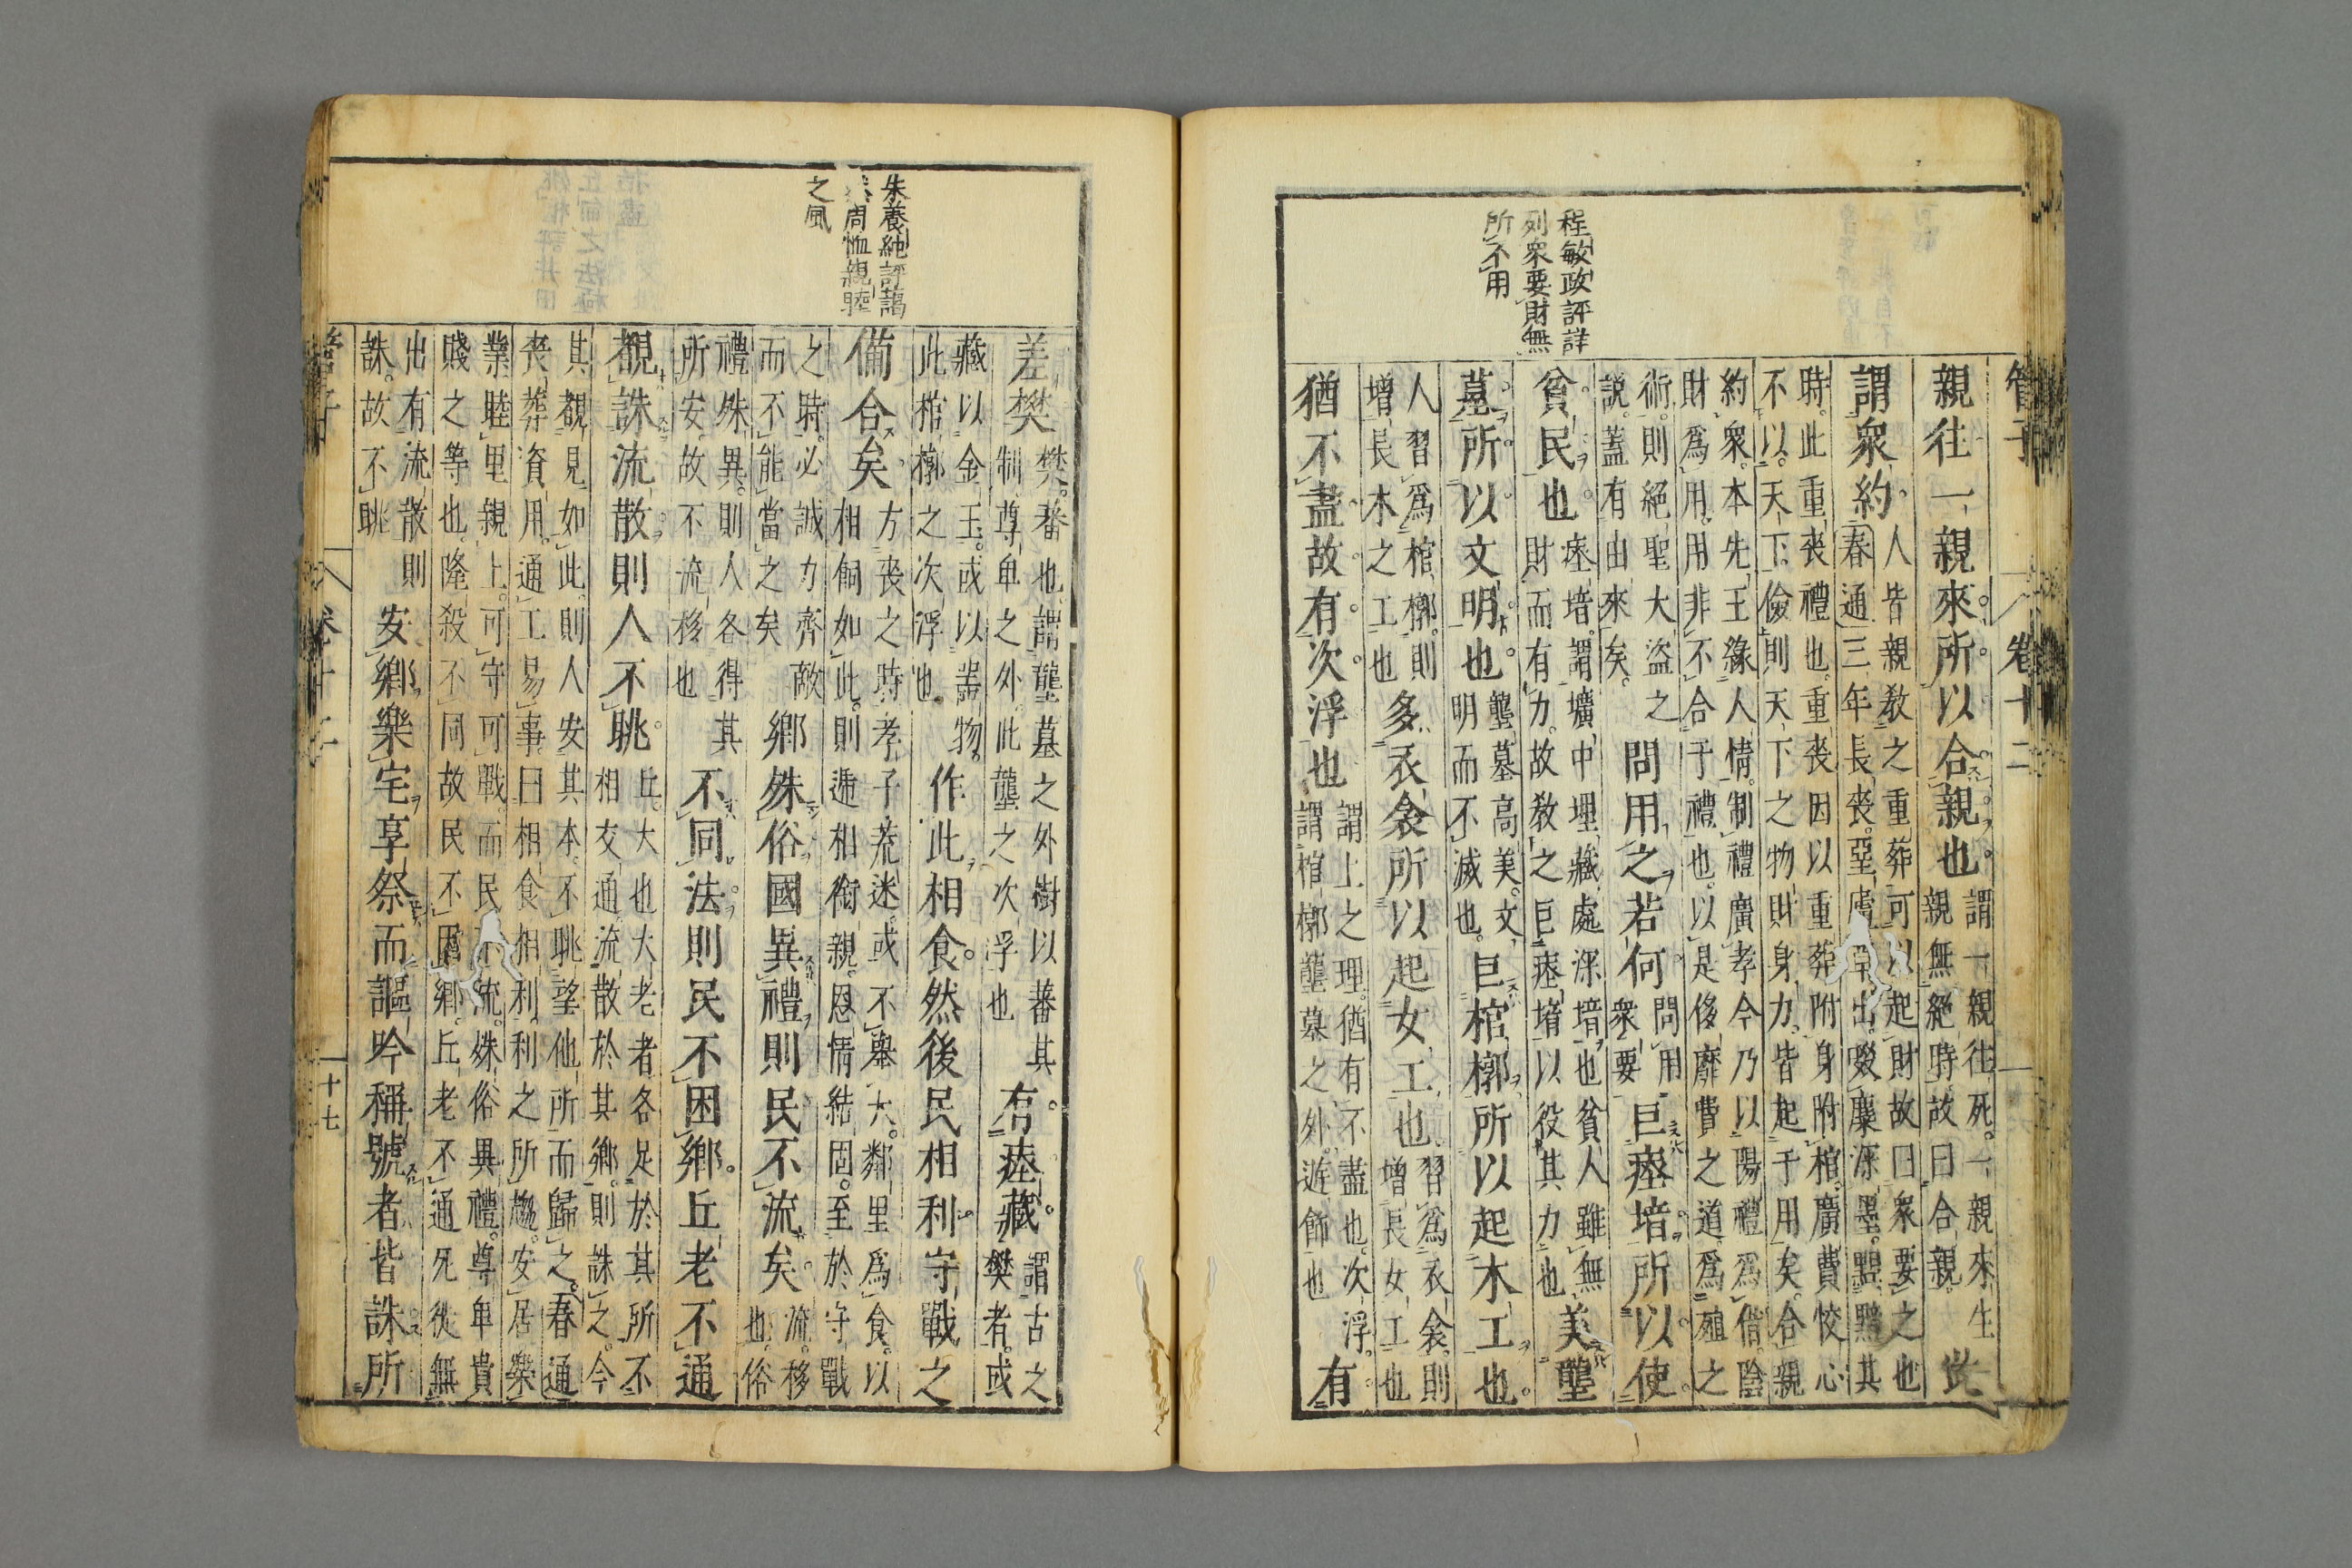 管子 卷十二
程敏政評詳
列衆要財無
所不用
親往一親來所以合親也 謂一親往死一親來生
親無絕時故曰合親 此
謂衆約 人皆親教之重葬可以起財故曰衆要之也
春通三年長喪堊 出啜麋深墨黯其
時此重喪禮也重喪因以重葬附身附棺廣費恔心
不以天下儉則天下之物財身力皆起于用矣合親
約衆本先王緣人情制禮廣孝今乃以陽禮爲借陰
財爲用用非不合于禮也以是侈靡費之道爲殖之
術則絕聖大盜之
說蓋有由來矣 問用之若何 問用
衆要 巨瘞堷所以使
貧民也 瘞堷謂壙中埋藏處深堷也貧人雖無
財而有力故教之巨瘞堷以役其力也 美壟
墓所以文明也 壟墓高美文
明而不滅也 巨棺槨所以起木工也
人習爲棺槨則
增長木之工也 多衣衾所以起女工也 習爲衣衾則
增長女工也
猶不盡故有次浮也 謂上之理猶有不盡也次浮
謂棺槨壟墓之外遊飾也 有
朱養純評藹
周恤親睦
之風
差樊 樊蕃也謂壟墓之外樹以蕃其
制尊卑之外此壟之次浮也 有瘞藏 謂古之
樊者或
藏以金玉或以器物
此棺槨之次浮也 作此相食然後民相利守戰之
備合矣 方喪之時孝子荒迷或不舉火鄰里爲食以
相飼如此則遞相銜親恩情結固至於守戰
之時必誠力齊敵
而不能當之矣 鄉殊俗國異禮則民不流矣 流移
也俗
禮殊異則人各得其
所安故不流移也 不同法則民不困鄉丘老不通
覩誅流散則人不眺 丘大也大老者各足於其所不
相交通流散於其鄉則誅之今
其覩見如此則人安其本不眺望他所而歸之春通
喪葬資用通工易事曰相食相利利之所趨安居樂
業睦里親上可守可戰而民不流殊俗異禮尊卑貴
賤之等也隆殺不同故民不困鄉丘老不通死徙無
出有流散則
誅故不眺 安鄉樂宅享祭而謳吟稱號者皆誅所
管子 卷十二 十七